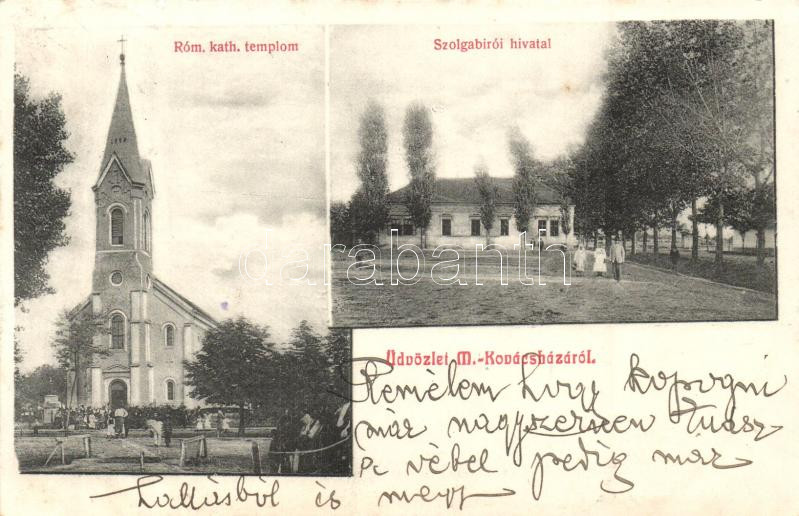 Róm. kath. templom
Szolgabirói hivatal
darabanth.com
Üdvözlet M.-Kovácsházáról.
Remélem hogy kopogni
már nagyszerűen tudsz
vébel pedig már
hallásból is megy